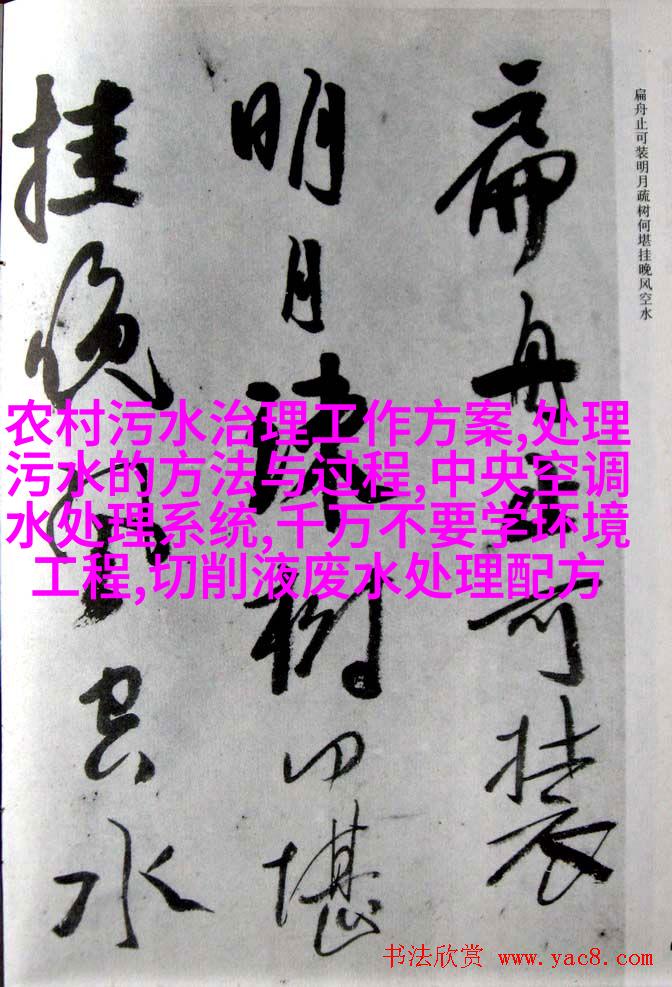 扁舟止可装
明月疏树何堪
挂晚风空水
扁舟止可装明月疏树何堪挂晚风空水
农村污水治理工作方案,处理
污水的方法与过程,中央空调
水处理系统,千万不要学环境
工程,切削液废水处理配方
书法欣赏 www.yac8.com